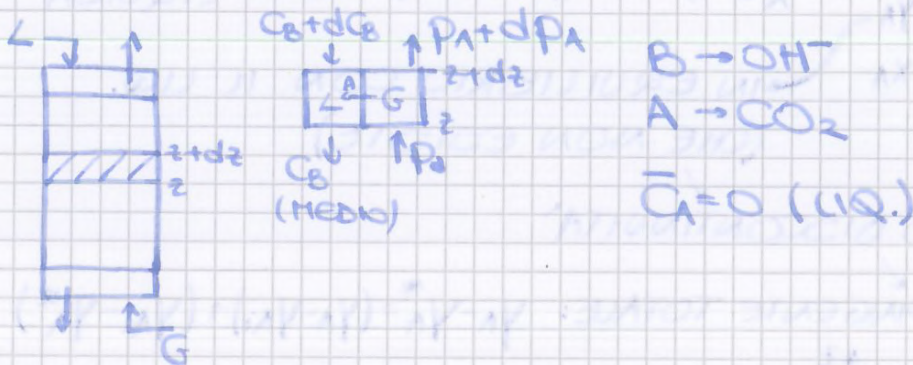 L
G
z+dz
z
C_B+dC_B
p_A+dp_A
z+dz
L A G
z
C_B
(MEDIO)
p_A
B → OH⁻
A → CO₂
C̄_A=0 (LIQ.)